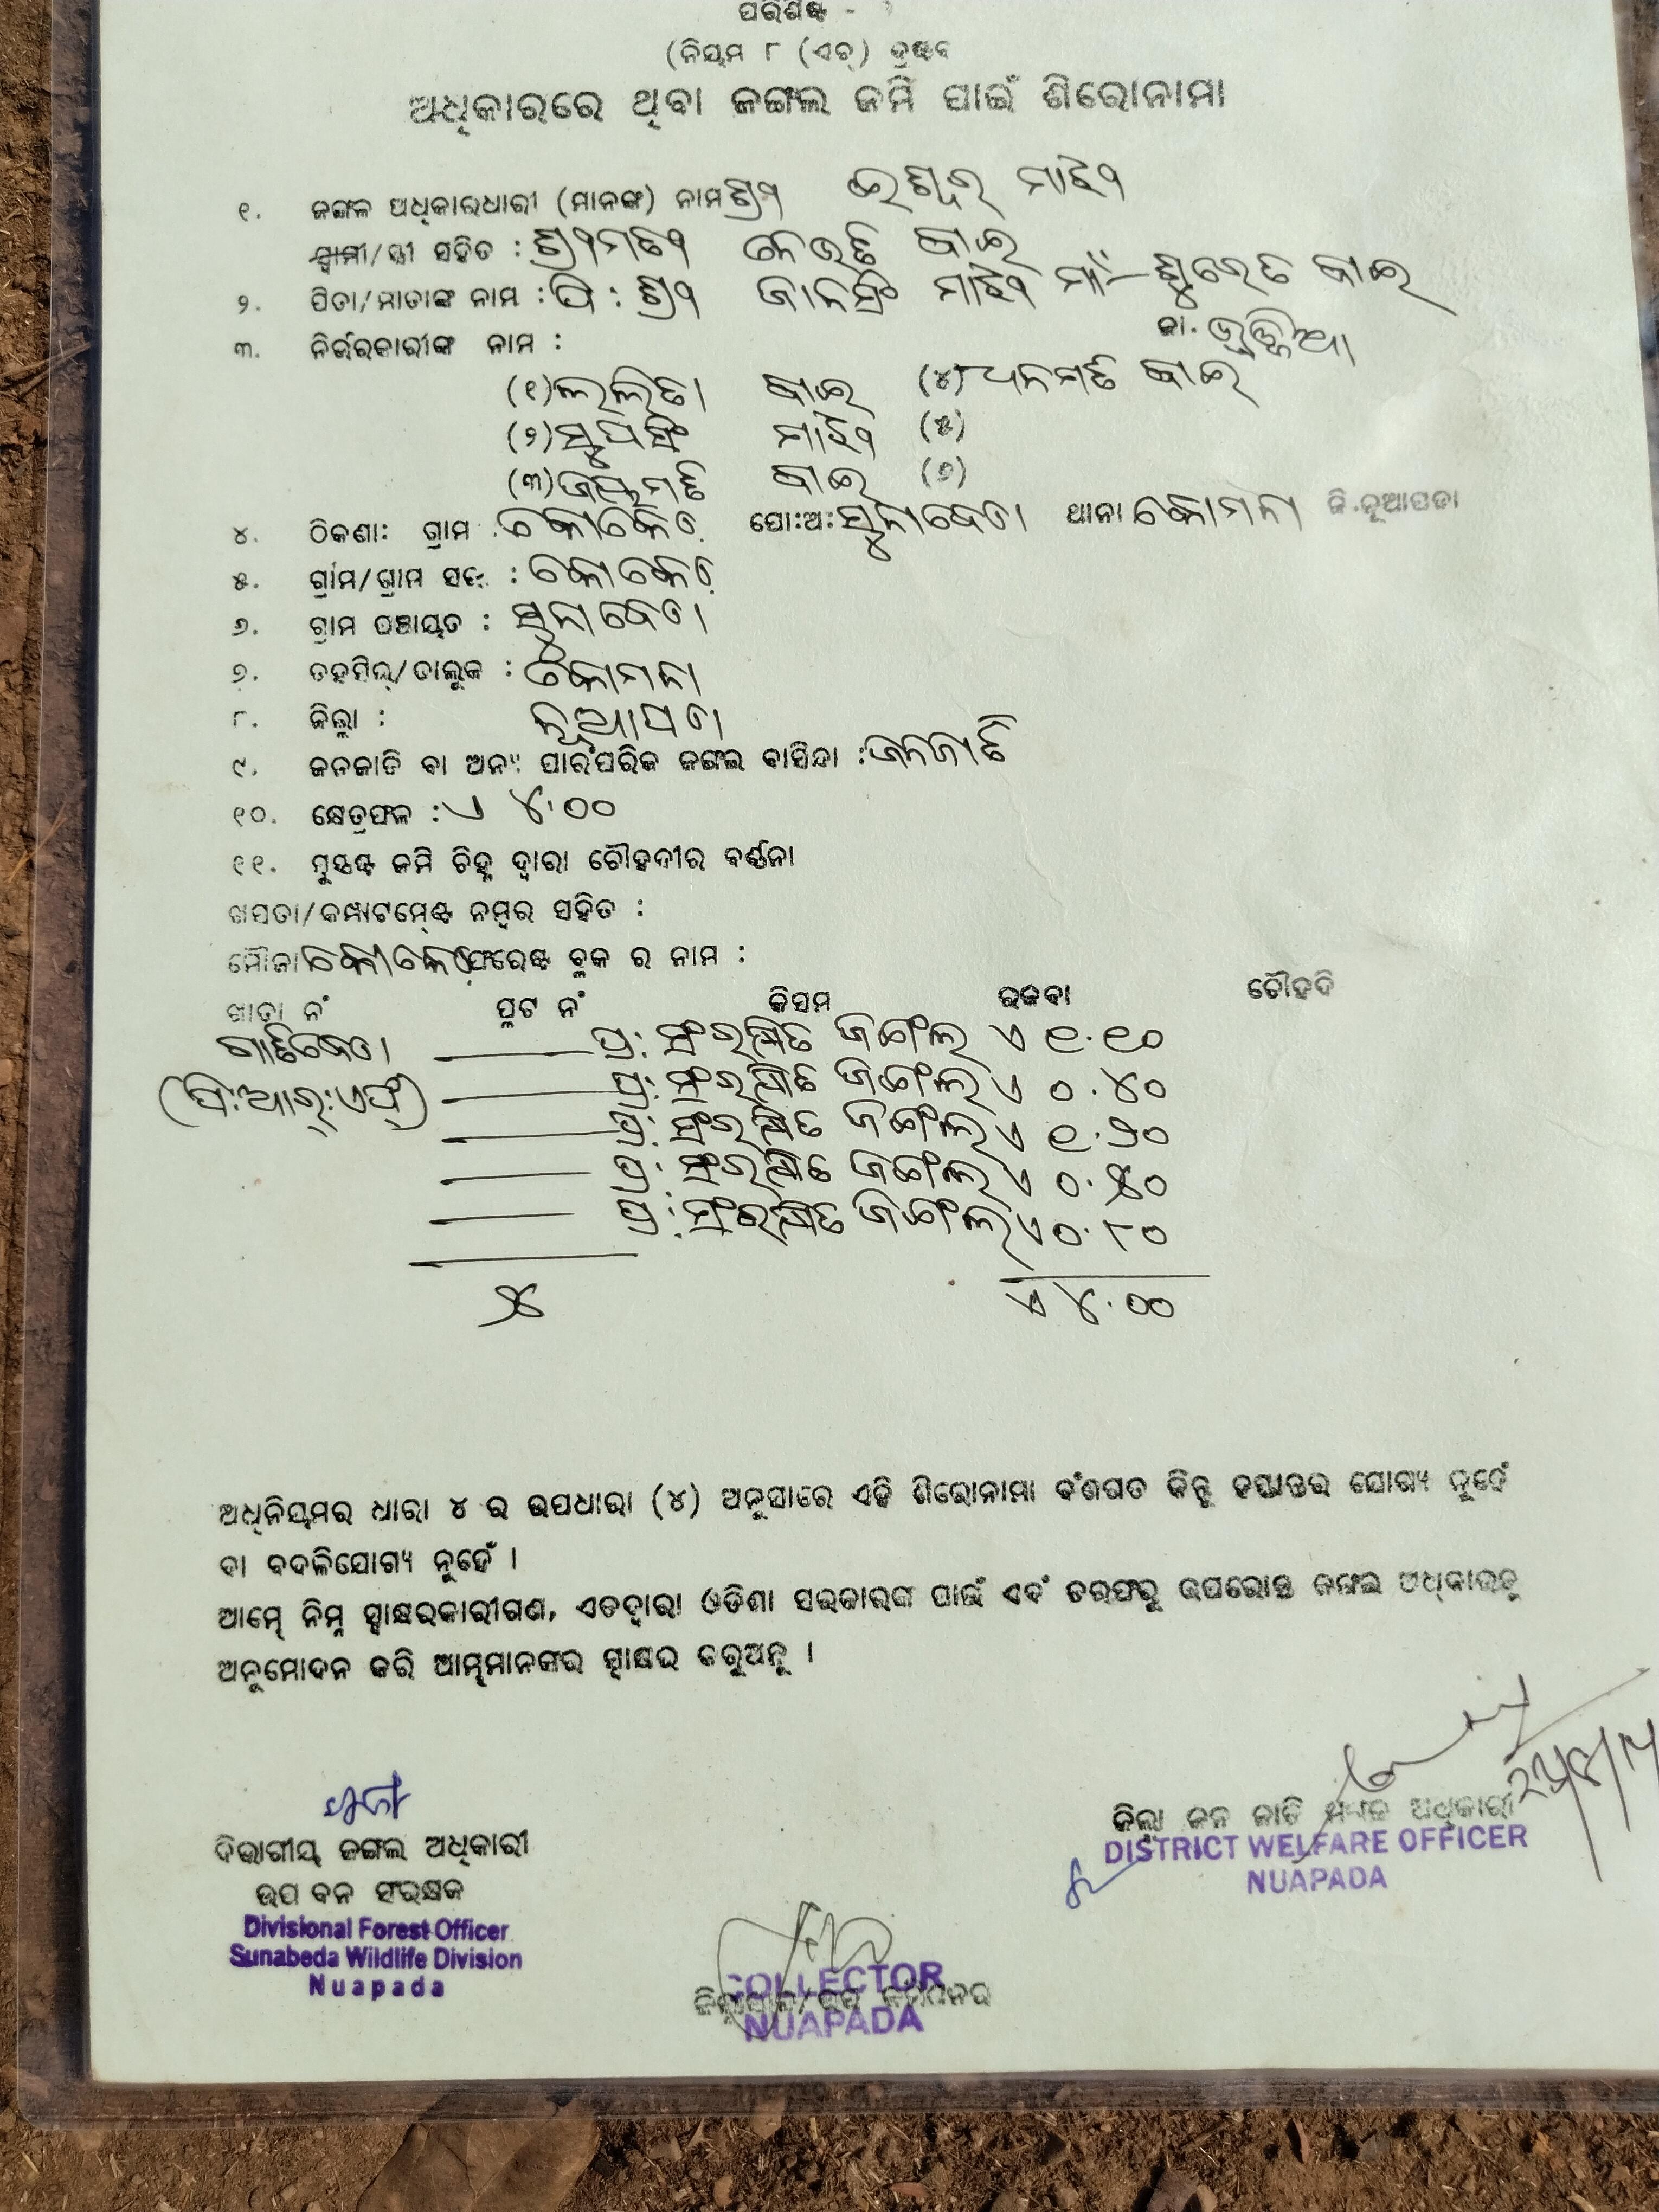 ପରିଶିଷ୍ଟ -
(ନିୟମ ୮ (ଏଚ୍) ଦ୍ରଷ୍ଟବ୍ୟ
ଅଧିକାରରେ ଥିବା ଜଙ୍ଗଲ ଜମି ପାଇଁ ଶିରୋନାମା
୧. ଜଙ୍ଗଳ ଅଧିକାରଧାରୀ (ମାନଙ୍କ) ନାମ ଶ୍ରୀ ଈଶ୍ୱର ମାଝୀ
ସ୍ୱାମୀ/ସ୍ତ୍ରୀ ସହିତ : ଶ୍ରୀମତୀ ବାଇ
୨. ପିତା/ମାତାଙ୍କ ନାମ : ପି : ଶ୍ରୀ ଜାନସିଂ ମାଝୀ ମାଁ- ବାଇ
ଜା. ଭୁଞ୍ଜିଆ
୩. ନିର୍ଭରକାରୀଙ୍କ ନାମ :
(୧) ଲଲିତା ବାଇ (୪) ଧନମତି ବାଇ
(୨) ସୁପସିଂ ମାଝୀ (୫)
(୩) ଜୟମତି ବାଇ (୬)
୪. ଠିକଣା: ଗ୍ରାମ : କୋକେଡ଼ା ପୋ:ଅ: ସୁନାବେଡା ଥାନା କୋମନା ଜି.ନୂଆପଡା
୫. ଗ୍ରାମ/ଗ୍ରାମ ସଭା : କୋକେଡ଼ା
୬. ଗ୍ରାମ ପଞ୍ଚାୟତ : ସୁନାବେଡା
୭. ତହସିଲ୍/ତାଲୁକ : କୋମନା
୮. ଜିଲ୍ଲା : ନୂଆପଡା
୯. ଜନଜାତି ବା ଅନ୍ୟ ପାରଂପରିକ ଜଙ୍ଗଲ ବାସିନ୍ଦା : ଜନଜାତି
୧୦. କ୍ଷେତ୍ରଫଳ : ଏ ୪.୦୦
୧୧. ସୁସ୍ପଷ୍ଟ ଜମି ଚିହ୍ନ ଦ୍ୱାରା ଚୌହଦୀର ବର୍ଣ୍ଣନା
ଖସଡା/କମ୍ପାଟମେଣ୍ଟ ନମ୍ବର ସହିତ :
ମୌଜା କୋକେଡ଼ା ଫରେଷ୍ଟ ବ୍ଲକ ର ନାମ :
ଖାତା ନଂ ପ୍ଲଟ ନଂ କିସମ ରକବା ଚୌହଦି
ଗାଟିବେଡା ପ୍ର: ସଂରକ୍ଷିତ ଜଙ୍ଗଲ ଏ ୧.୧୦
(ପି:ଆର୍:ଏଫ୍) ପ୍ର: ସଂରକ୍ଷିତ ଜଙ୍ଗଲ ଏ ୦.୪୦
ପ୍ର: ସଂରକ୍ଷିତ ଜଙ୍ଗଲ ଏ ୧.୨୦
ପ୍ର: ସଂରକ୍ଷିତ ଜଙ୍ଗଲ ଏ ୦.୫୦
ପ୍ର: ସଂରକ୍ଷିତ ଜଙ୍ଗଲ ଏ ୦.୮୦
୫ ଏ ୪.୦୦
ଅଧିନିୟମର ଧାରା ୪ ର ଉପଧାରା (୪) ଅନୁସାରେ ଏହି ଶିରୋନାମା ବଂଶଗତ କିନ୍ତୁ ହସ୍ତାନ୍ତର ଯୋଗ୍ୟ ନୁହେଁ
ବା ବଦଳିଯୋଗ୍ୟ ନୁହେଁ ।
ଆମ୍ଭେ ନିମ୍ନ ସ୍ୱାକ୍ଷରକାରୀଗଣ, ଏତଦ୍ୱାରା ଓଡିଶା ସରକାରଙ୍କ ପାଇଁ ଏବଂ ତରଫରୁ ଉପରୋକ୍ତ ଜଙ୍ଗଲ ଅଧିକାରକୁ
ଅନୁମୋଦନ କରି ଆମ୍ଭମାନଙ୍କର ସ୍ୱାକ୍ଷର କରୁଅଛୁ ।
ଦିଭାଗୀୟ ଜଙ୍ଗଲ ଅଧିକାରୀ
ଉପ ବନ ସଂରକ୍ଷକ
Divisional Forest Officer
Sunabeda Wildlife Division
Nuapada
ଜିଲ୍ଲା ଜନ ଜାତି ମଙ୍ଗଳ ଅଧିକାରୀ
DISTRICT WELFARE OFFICER
NUAPADA
COLLECTOR
NUAPADA